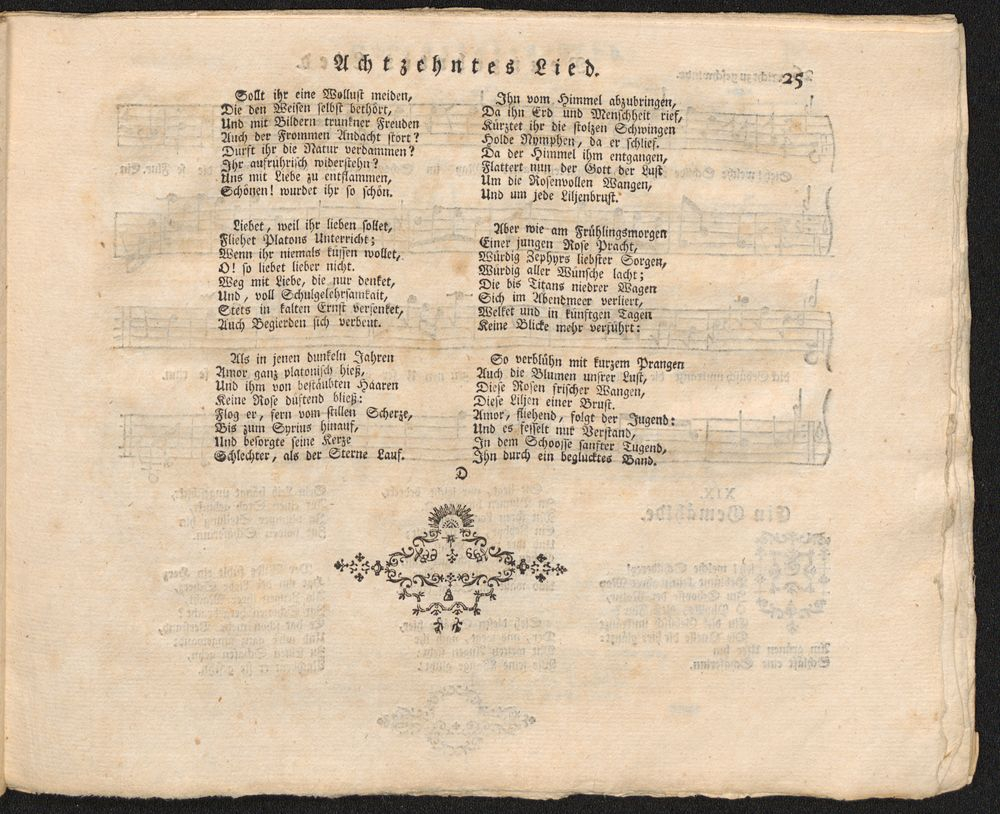 Achtzehntes Lied.
25
Sollt ihr eine Wollust meiden,
Die den Weisen selbst bethört,
Und mit Bildern trunkner Freuden
Auch der Frommen Andacht stört?
Dürft ihr die Natur verdammen?
Ihr aufrührisch widerstehn?
Uns mit Liebe zu entflammen,
Schönen! wurdet ihr so schön.
Liebet, weil ihr lieben sollet,
Fliehet Platons Unterricht;
Wenn ihr niemals küssen wollet,
O! so liebet lieber nicht.
Weg mit Liebe, die nur denket,
Und, voll Schulgelehrsamkait,
Stets in kalten Ernst versenket,
Auch Begierden sich verbeut.
Als in jenen dunkeln Jahren
Amor ganz platonisch hieß,
Und ihm von bestäubten Haaren
Keine Rose düftend bließ:
Flog er, fern vom stillen Scherze,
Bis zum Syrius hinauf,
Und besorgte seine Kerze
Schlechter, als der Sterne Lauf.
Ihn vom Himmel abzubringen,
Da ihn Erd und Menschheit rief,
Kürztet ihr die stolzen Schwingen
Holde Nymphen, da er schlief.
Da der Himmel ihm entgangen,
Flattert nun der Gott der Lust
Um die Rosenvollen Wangen,
Und um jede Liljenbrust.
Aber wie am Frühlingsmorgen
Einer jungen Rose Pracht,
Würdig Zephyrs liebster Sorgen,
Würdig aller Wünsche lacht;
Die bis Titans niedrer Wagen
Sich im Abendmeer verliert,
Welket und in künftgen Tagen
Keine Blicke mehr verführt:
So verblühn mit kurzem Prangen
Auch die Blumen unsrer Lust,
Diese Rosen frischer Wangen,
Diese Liljen einer Brust.
Amor, fliehend, folgt der Jugend:
Und es fesselt nur Verstand,
In dem Schoosse sanfter Tugend,
Ihn durch ein beglücktes Band.
D